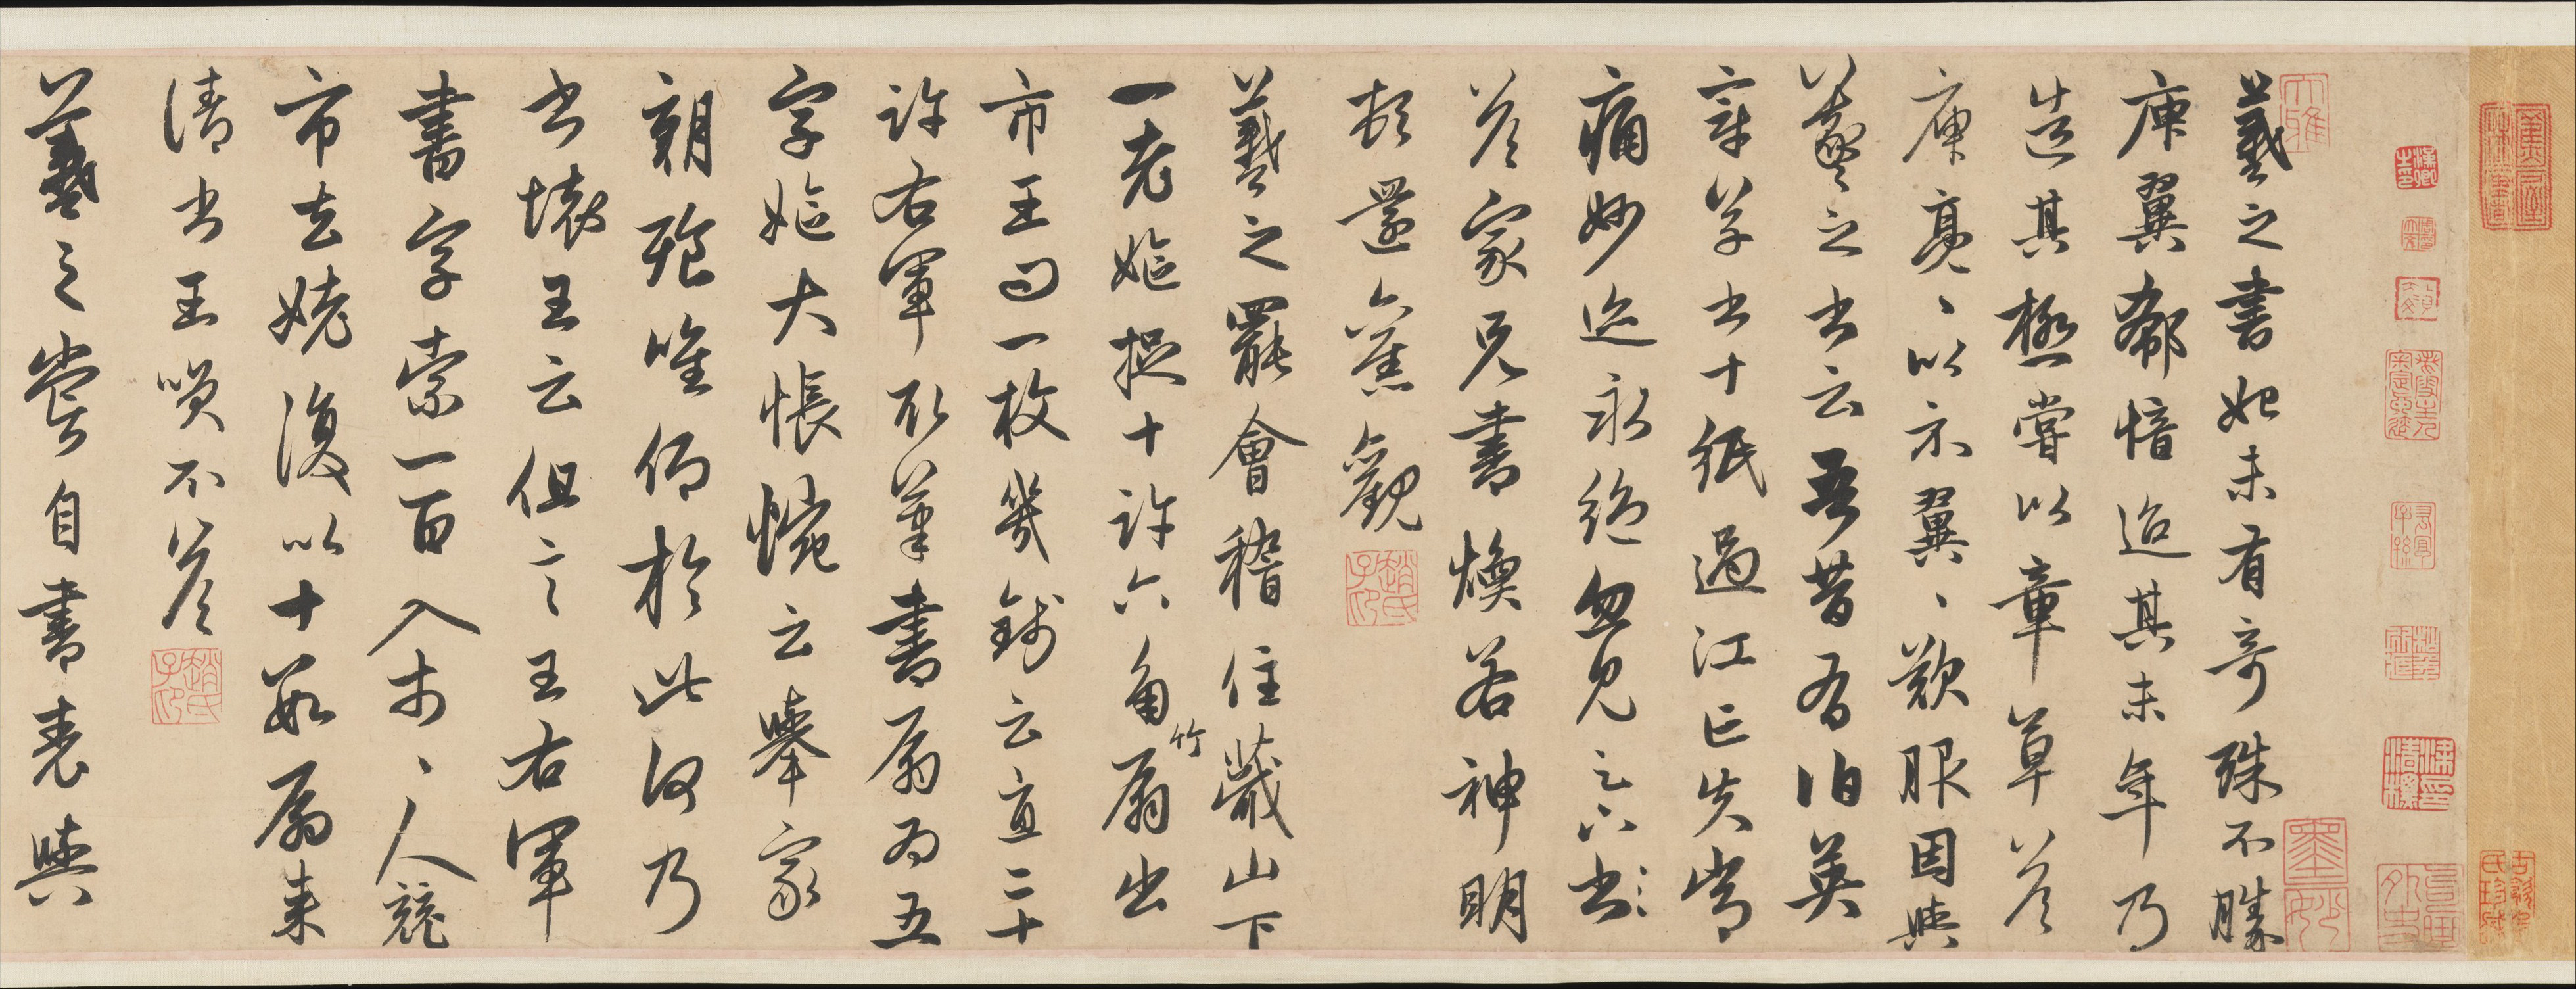 羲之書妃未有奇殊不勝
庾翼郗愔迨其末年乃
造其極嘗以章草答
庾亮、以示翼、歎服因與
羲之書云吾昔有伯英
章草書十紙過江亡失常
痛妙迹永絶忽見足下書
答家兄書煥若神明
頓還舊觀
羲之罷會稽住蕺山下
一老嫗捉十許六角竹扇出
市王問一枚幾錢云直二十
許右軍取筆書扇為五
字嫗大悵惋云舉家
朝飱唯仰於此何乃
書壞王云但言王右軍
書字索一百入市、人競
市去姥復以十數扇来
請書王笑不答
羲之嘗自書表與
趙氏子昂
趙氏子昂
大雅
墨妙